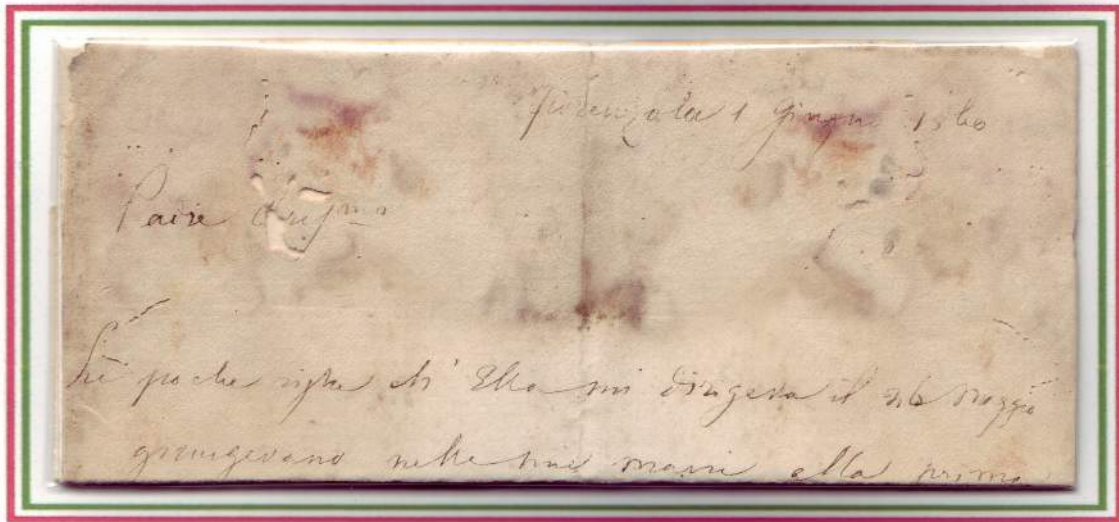 Fiorenzola 1 Giugno 1860
Padre
Le poche righe ch' Ella mi dirigeva il 26 Maggio
giungevano nelle mie mani alla prima